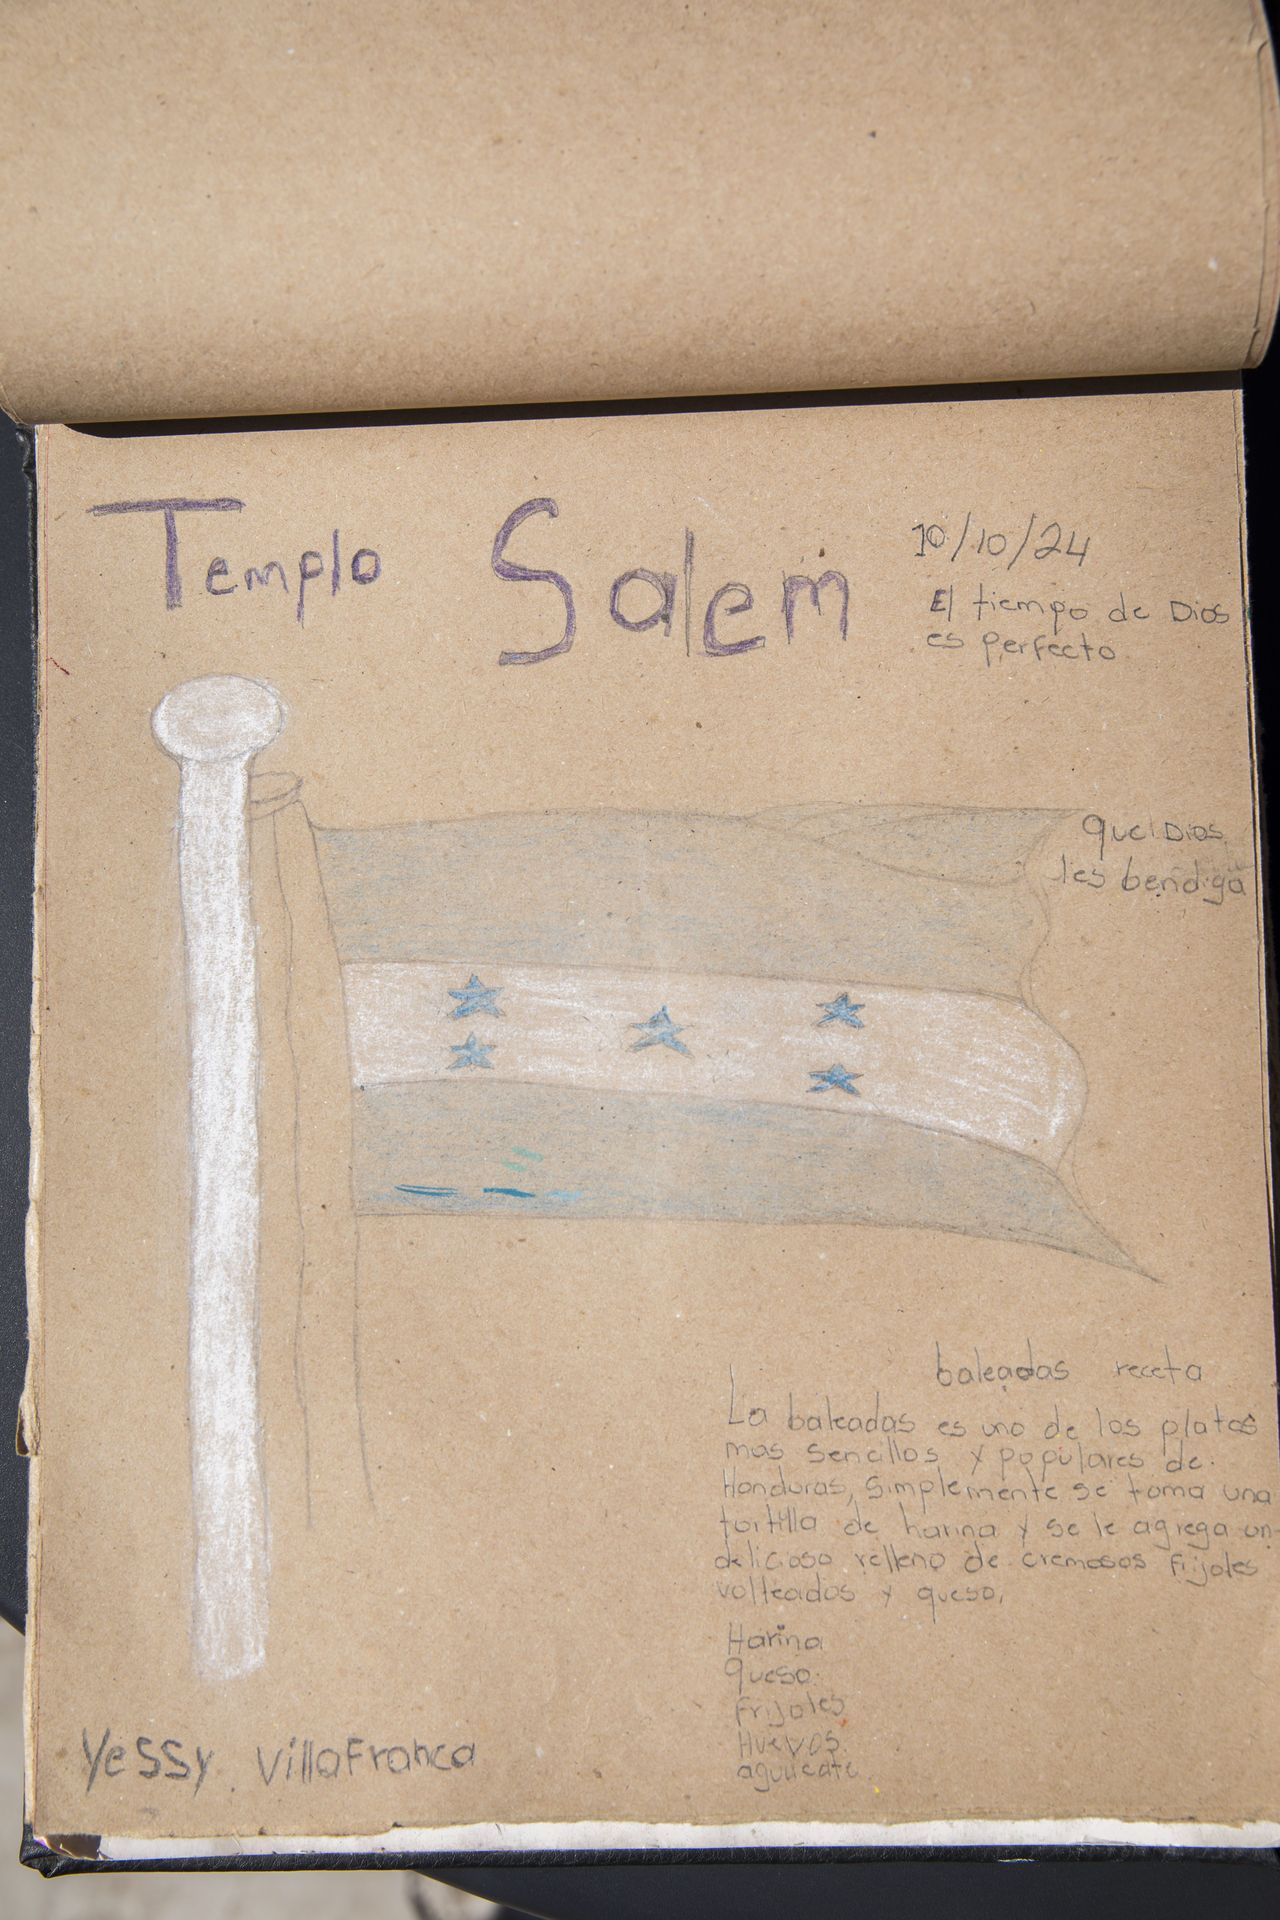 Templo Salem
10/10/24
El tiempo de Dios
es perfecto
que Dios
les bendiga
baleadas receta
La baleadas es uno de los platos
mas sencillos y populares de
Honduras, simplemente se toma una
tortilla de harina y se le agrega un
delicioso relleno de cremosos frijoles
volteados y queso,
Harina
queso
frijoles
Huevos
Yessy Villafranca